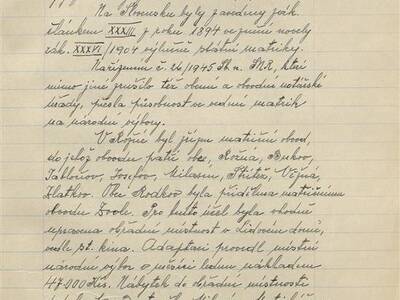 Na Slovensku byly zavedeny zák.
článkem XXXIII z roku 1894 ve znění novely
zák. XXXVI/1904 výlučně státní matriky.
Nařízením č. 26/1945 Sb. n. SNR, které
mimo jiné zrušilo též obecní a obvodní notářské
úřady, přešla působnost ve vedení matrik
na národní výbory.
V Rožné byl zřízen matriční obvod,
do jehož obvodu patří obce, Rožná, Bukov,
Jabloňov, Josefov, Milasín, Střítež, Věžná,
Zlatkov. Obec Rodkov byla přidělena matričnímu
obvodu Zvole. Pro tento účel byla vhodně
upravena úřadní místnost v lidovém domě,
vedle st. kina. Adaptaci provedl místní
národní výbor v měsíci lednu nákladem
47.000 Kčs. Nábytek do úřadní místnosti